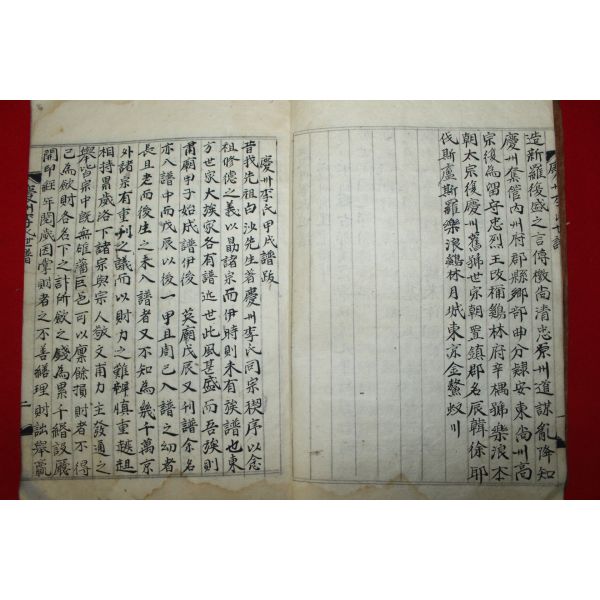 慶州李氏世譜
造新羅後盛之言傳檄尙淸忠原州道謀亂降知
慶州集管內州府郡縣鄕部曲分隸安東尙州高
宗後爲留守忠烈王改稱鷄林府辛禑號樂浪本
朝太宗復慶州舊號世宗朝置鎭郡名辰韓徐耶
伐斯盧斯羅樂浪鷄林月城東京金鰲蚊川
慶州李氏甲戌譜跋
昔我先祖白沙先生著慶州李氏同宗稧序以念
祖修德之義以勗諸宗而伊時則未有族譜也東
方世家大族家各有譜近世此風甚盛而吾族則
肅廟甲子始成譜伊後 英廟戊辰又刊譜余名
亦入譜中而戊辰以後一甲且周已入譜之幼者
長且老而後生之未入譜者又不知爲幾千萬京
外諸宗有重刊之議而以財力之難鮮愼重越趄
相持累歲洛下諸宗與宗人敬天甫力主發通之
擧皆宗中旣無雄藩巨邑可以廩餘損財者不得
已爲斂財各名下之計所斂之錢爲累千緡設廳
開印旺年閱歲因掌財者之不善繕理財詘擧贏
慶州李氏世譜
二